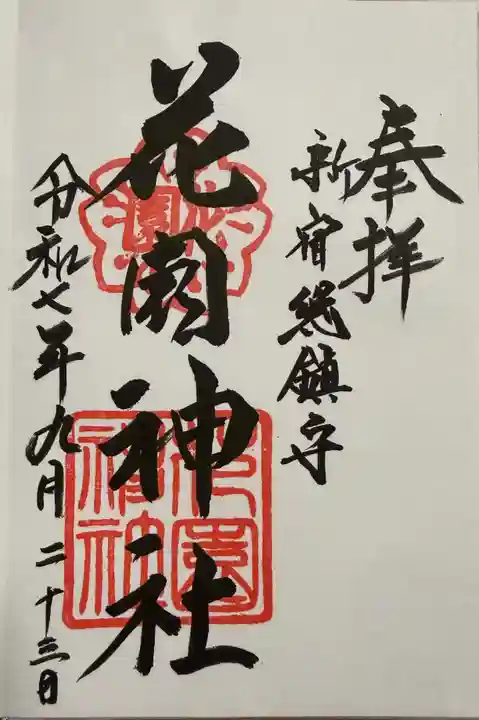 奉拝
新宿総鎮守
花園神社
令和七年九月二十三日
花園
神社